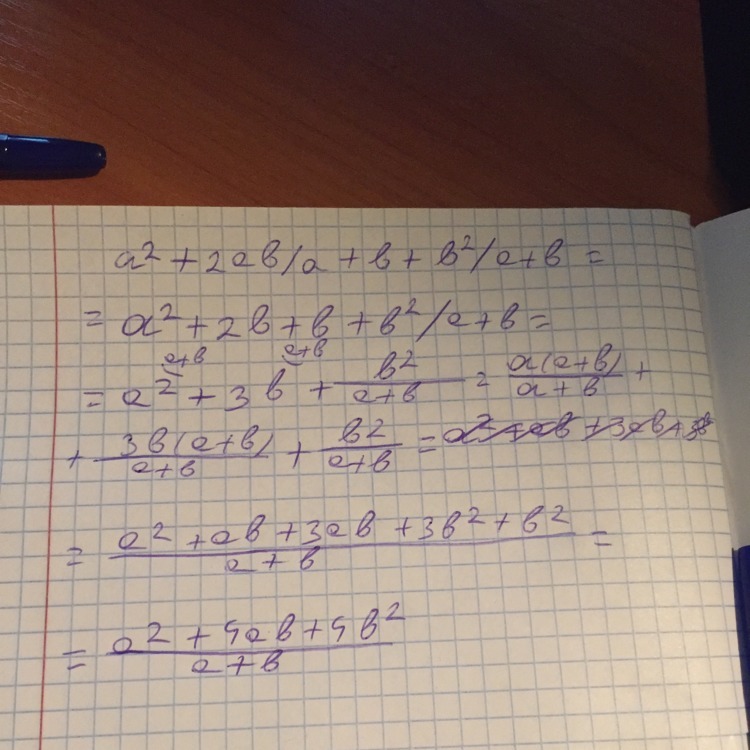 a² + 2ab/a + b + b²/a+b =
= a² + 2b + b + b²/a+b =
= a² (a+b) + 3b (a+b) + b²/(a+b) = a(a+b)/(a+b) +
+ 3b(a+b)/(a+b) + b²/(a+b) =
= (a² + ab + 3ab + 3b² + b²)/(a+b) =
= (a² + 4ab + 4b²)/(a+b)